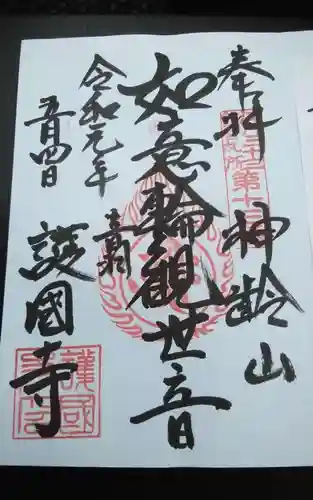 奉拝
神齢山
如意輪観世音
令和元年
五月四日
護國寺
護國